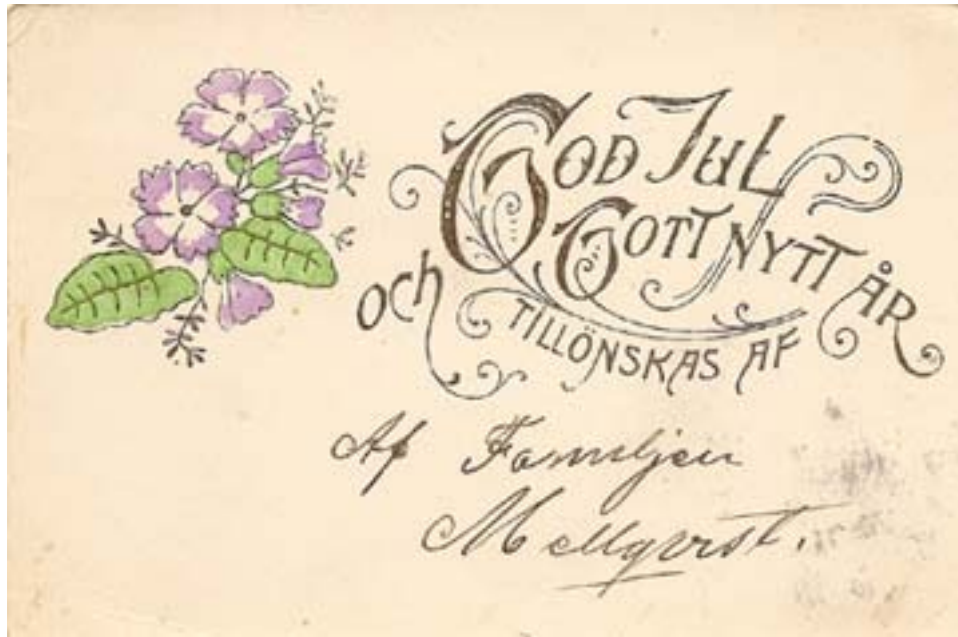 GOD JUL
OCH GOTT NYTT ÅR
TILLÖNSKAS AF
Af Familjen
Mellqvist.